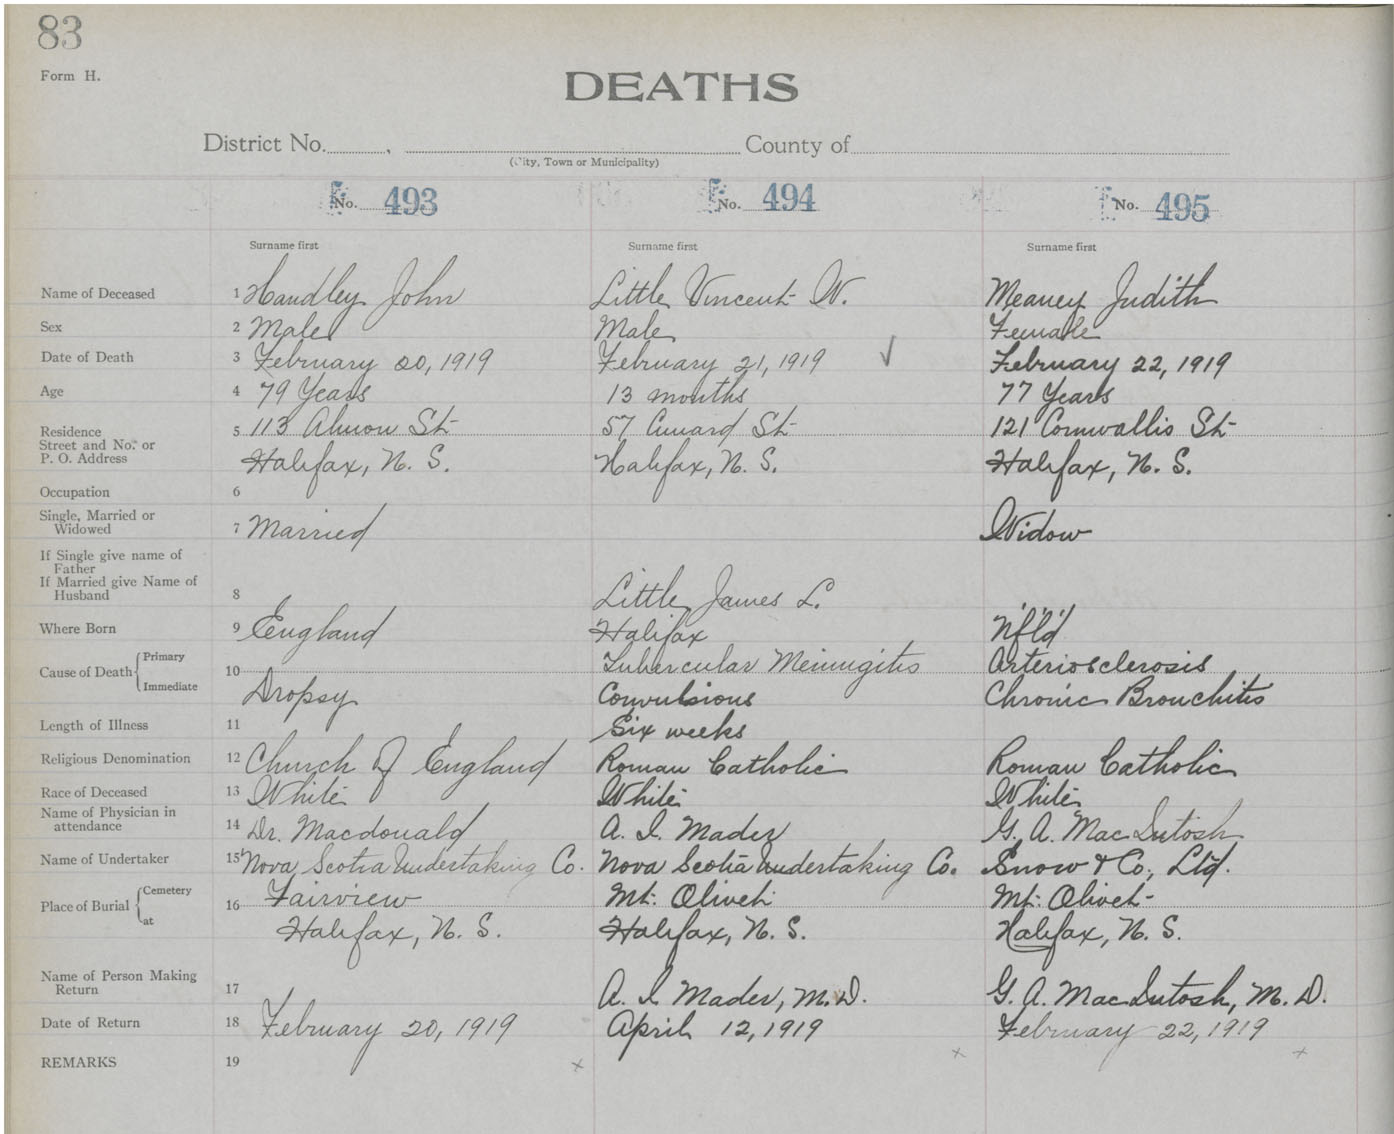 83
Form H.
DEATHS
District No. , County of
(City, Town or Municipality)
No. 493 No. 494 No. 495
Surname first Surname first Surname first
Name of Deceased 1 Handley John Little Vincent W. Meaney Judith
Sex 2 Male Male Female
Date of Death 3 February 20, 1919 February 21, 1919 ✓ February 22, 1919
Age 4 79 Years 13 months 77 Years
Residence
Street and No. or 5 113 Almon St 57 Cunard St 121 Cornwallis St
P. O. Address Halifax, N. S. Halifax, N. S. Halifax, N. S.
Occupation 6
Single, Married or
Widowed 7 Married Widow
If Single give name of
Father
If Married give Name of
Husband 8 Little James L.
Where Born 9 England Halifax Nf'l'd
Cause of Death Primary 10 Tubercular Meningitis Arteriosclerosis
Immediate Dropsy Convulsions Chronic Bronchitis
Length of Illness 11 Six weeks
Religious Denomination 12 Church of England Roman Catholic Roman Catholic
Race of Deceased 13 White White White
Name of Physician in
attendance 14 Dr. Macdonald A. I. Mader G. A. MacIntosh
Name of Undertaker 15 Nova Scotia Undertaking Co. Nova Scotia Undertaking Co. Snow & Co., Ltd.
Place of Burial Cemetery 16 Fairview Mt. Olivet Mt. Olivet
at Halifax, N. S. Halifax, N. S. Halifax, N. S.
Name of Person Making
Return 17 A. I. Mader, M.D. G. A. MacIntosh, M. D.
Date of Return 18 February 20, 1919 April 12, 1919 February 22, 1919
REMARKS 19 x x x